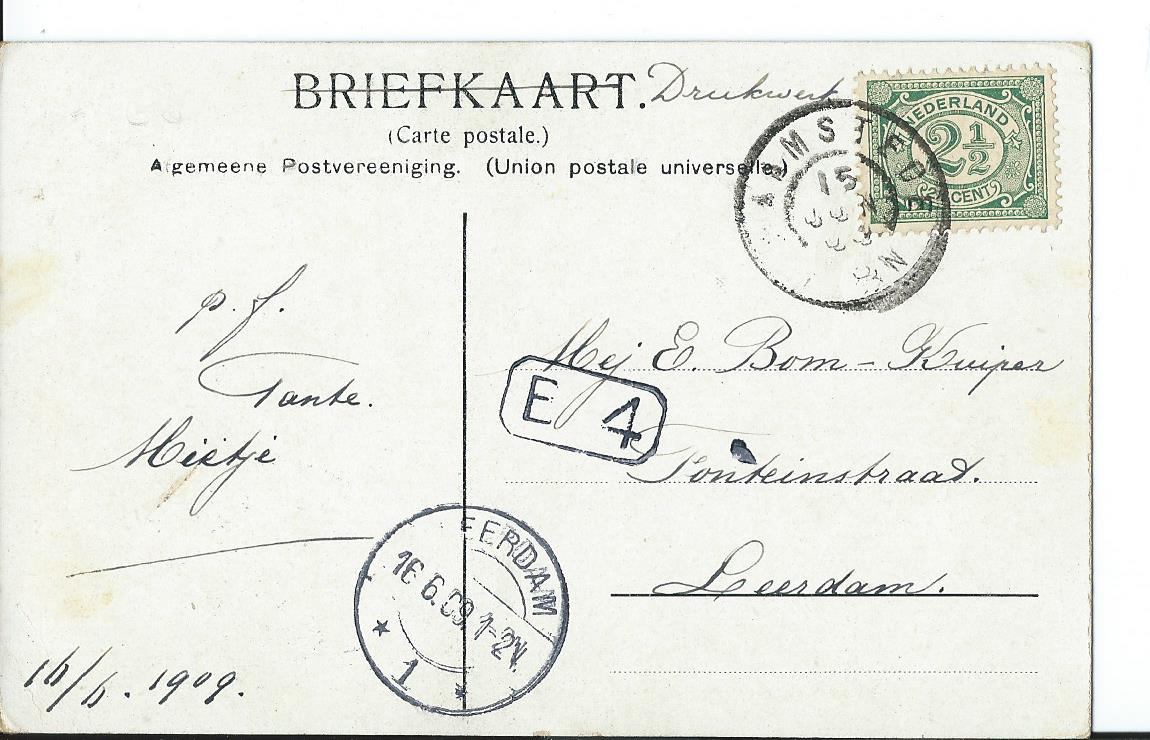 BRIEFKAART. Drukwerk
(Carte postale.)
Algemeene Postvereeniging. (Union postale universelle.)
NEDERLAND
2½
CENT
15
JUN
p. f.
Tante.
Mietje
16/6. 1909.
Mej E. Bom-Kuiper
E 4
Fonteinstraat.
Leerdam.
EERDAM
16.6.09.1-2N.
1